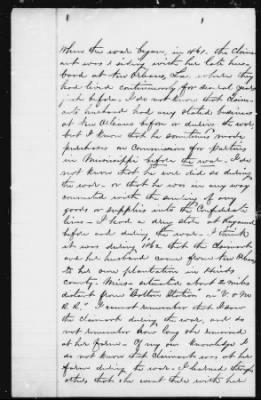 When the war began, in 1861, the claim-
ant was residing with her late hus-
band at New Orleans, La. where they
had lived continuously for several years
just before. I do not know that claim-
ants husband had any stated business
at New Orleans before or during the war
but I know that he sometimes made
purchases on Commission for parties
in Mississippi before the war. I do
not know that he ever did so during
the war - or that he was in any way
connected with the running of any
goods or supplies into the Confederate
lines. I had a drug store at Raymond
before and during the war. I think
it was during 1862 that the claimant
and her husband came from New Orleans
to her own plantation in Hinds
county. Miss. situated about 2 miles
distant from Bolton Station on "V. & M.
R.R." I cannot remember that I saw
the claimant during the war, and do
not remember how long she remained
at her farm. Of my own knowledge I
do not know that claimant was at her
farm during the war. I learned through
others that she went there with her